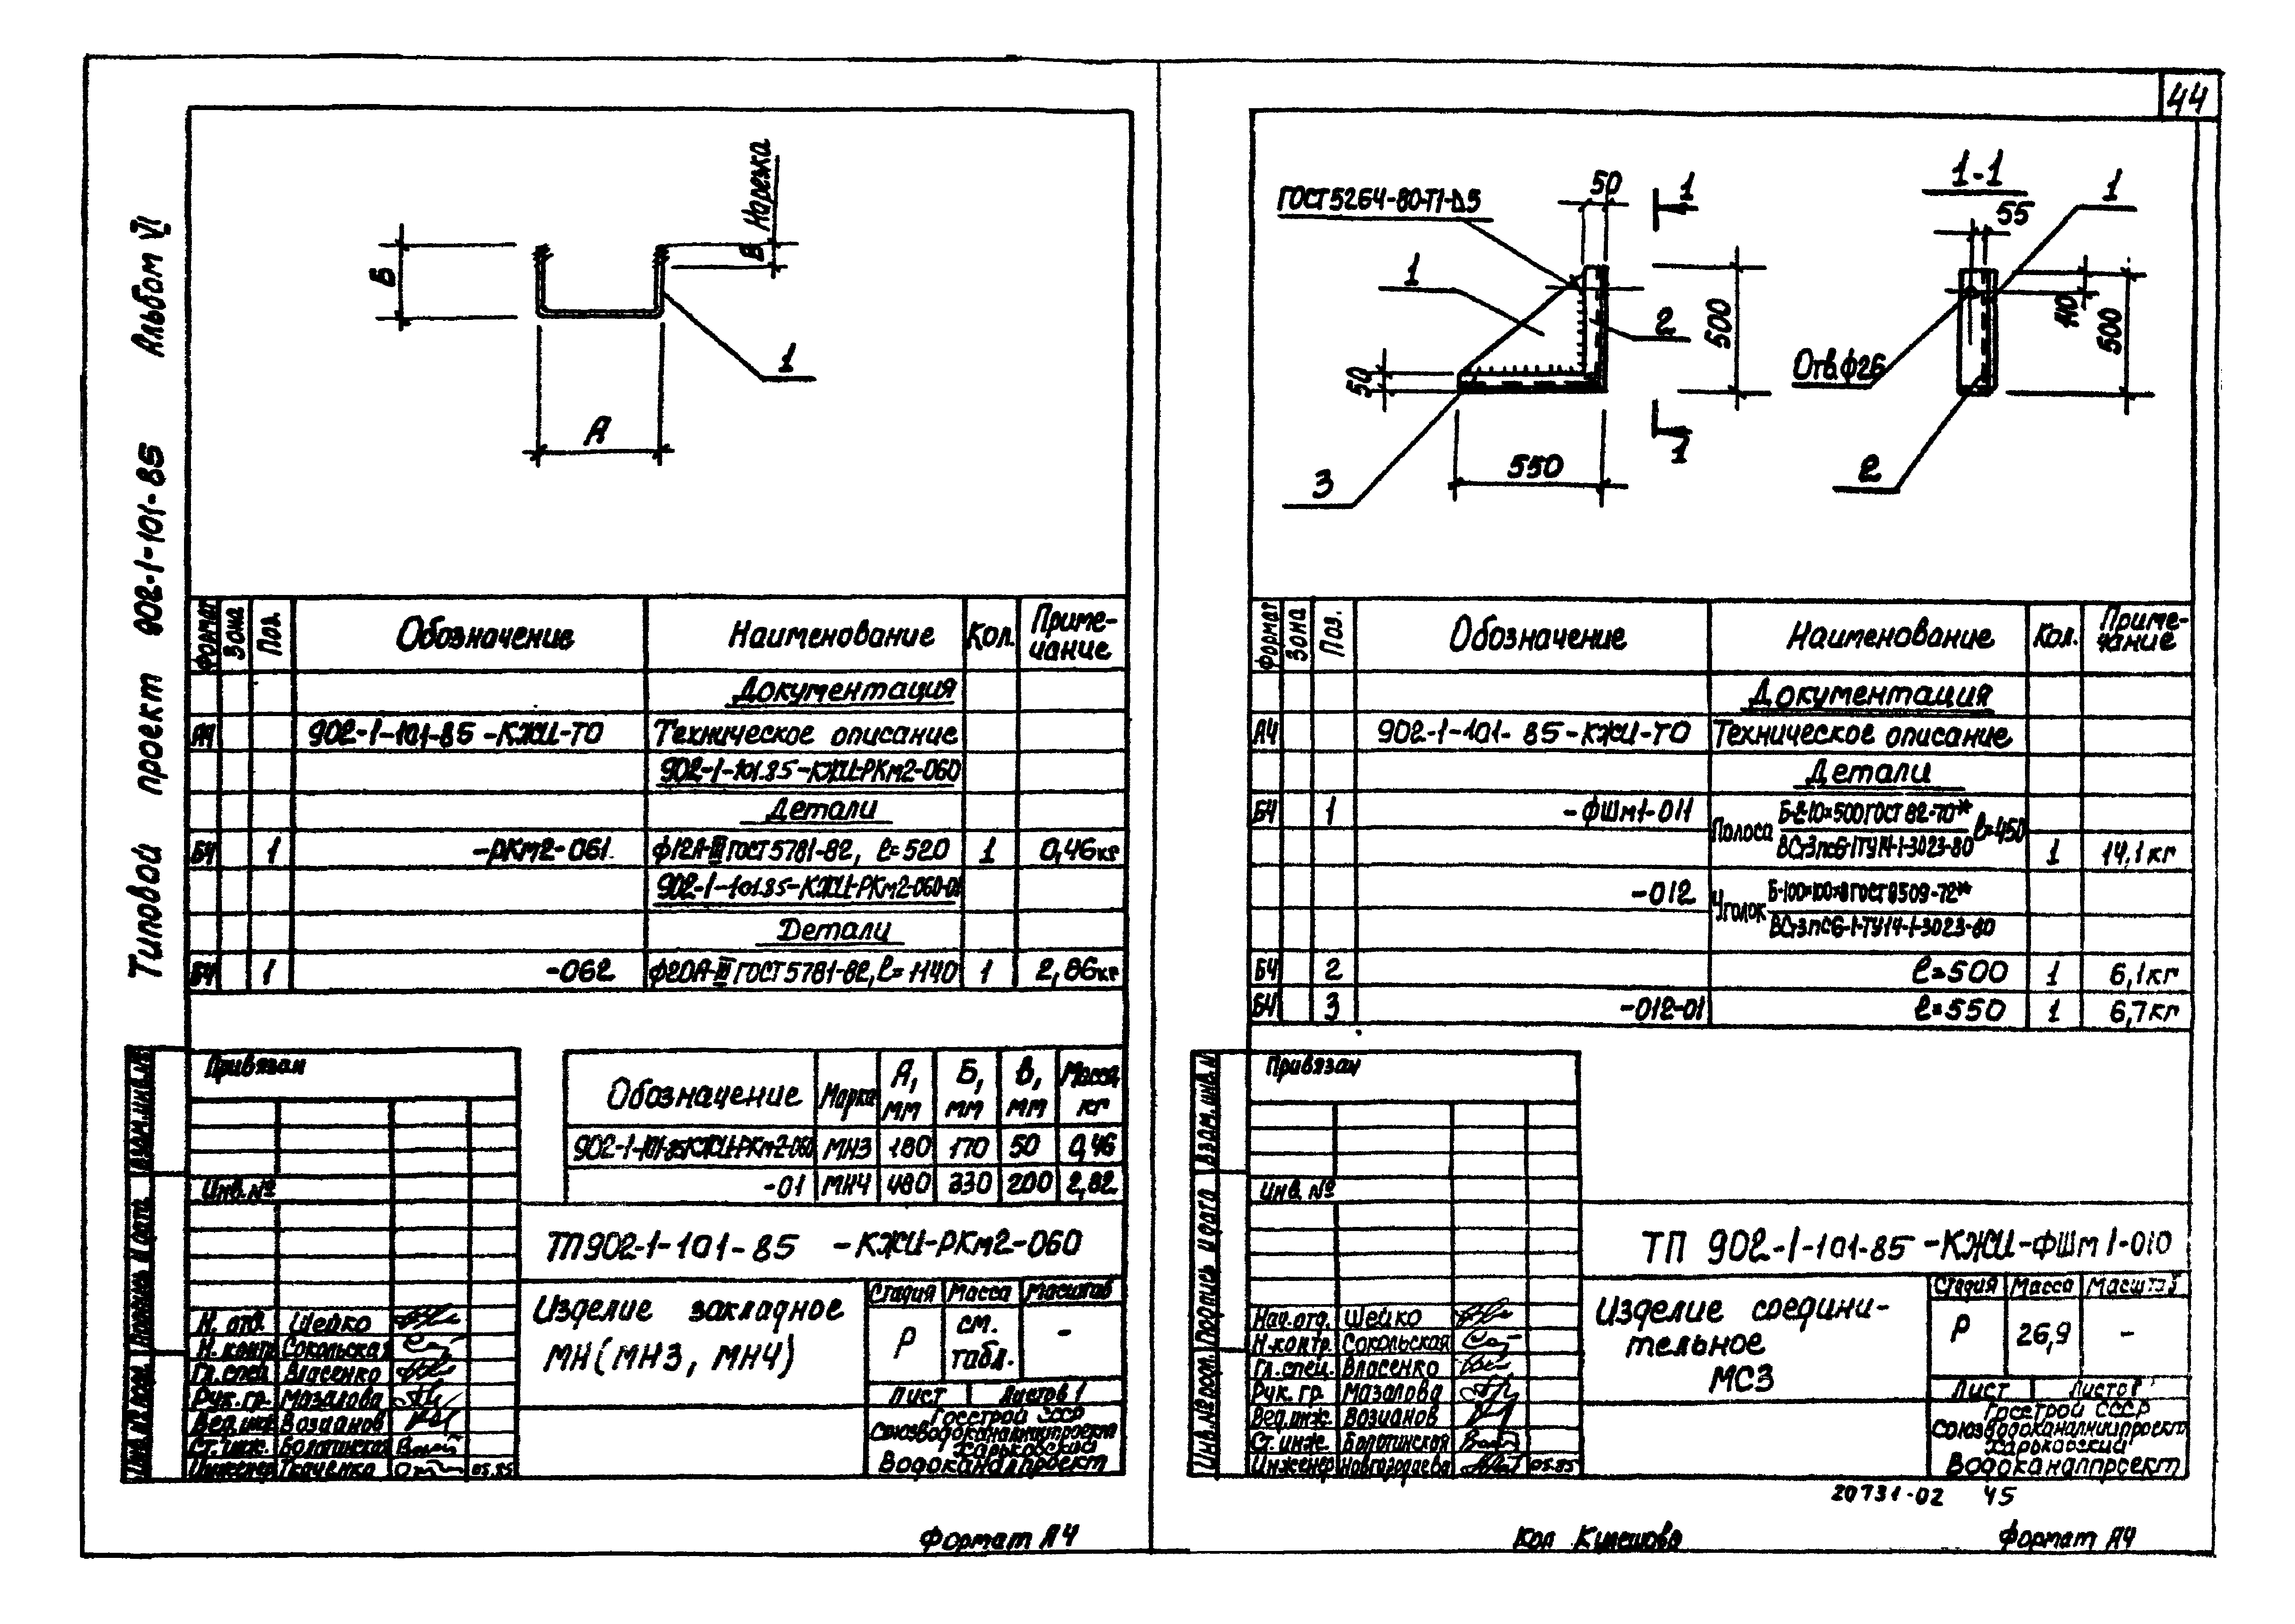 44
Типовой проект 902-1-101-85 Альбом VI
Нарезка
Б
В
1
А
Формат Зона Поз. Обозначение Наименование Кол. Приме-
чание
Документация
А4 902-1-101-85-КЖИ-ТО Техническое описание
902-1-101.85-КЖИ-РКм2-060
Детали
БЧ 1 -РКм2-061. ф12А-III ГОСТ 5781-82, ℓ=520 1 0,46кг
902-1-101.85-КЖИ-РКм2-060-01
Детали
БЧ 1 -062 ф20А-III ГОСТ 5781-82, ℓ=1140 1 2,86кг
Обозначение Марка А, мм Б, мм В, мм Масса, кг
902-1-101-85КЖИ-РКм2-060 МН3 180 170 50 0,46
-01 МН4 480 330 200 2,82
Привязан
Инв.№
ТП902-1-101-85 -КЖИ-РКм2-060
Изделие закладное
МН(МН3, МН4)
Стадия Масса Масштаб
Р см. табл. -
Лист Листов 1
Госстрой СССР
Союзводоканалниипроект
Харьковский
Водоканалпроект
Н. отд. Шейко
Н. контр. Сокольская
Гл. спец. Власенко
Рук. гр. Мазалова
Вед.инж. Возианов
Ст. инж. Болотинская
Инженер Ткаченко 05.85
Взам.инв.№
Подпись и дата
Инв.№ подл.
Формат А4
ГОСТ 5264-80-Т1-Δ5
50
1
1
2
500
50
3
550
1
1-1
55
1
110
500
Отв.ф26
2
Формат Зона Поз. Обозначение Наименование Кол. Приме-
чание
Документация
А4 902-1-101-85-КЖИ-ТО Техническое описание
Детали
БЧ 1 -ФШм1-011 Полоса Б-2-10×500 ГОСТ 82-70* ℓ=450
ВСт3пс6-1ТУ14-1-3023-80 1 14,1кг
-012 Уголок Б-100×100×8 ГОСТ 8509-72*
ВСт3пс6-1-ТУ14-1-3023-80
БЧ 2 ℓ=500 1 6,1кг
БЧ 3 -012-01 ℓ=550 1 6,7кг
Привязан
Инв. №
ТП 902-1-101-85-КЖИ-ФШм1-010
Изделие соедини-
тельное
МС3
Стадия Масса Масштаб
Р 26,9 -
Лист Листов 1
Госстрой СССР
Союзводоканалниипроект
Харьковский
Водоканалпроект
Нач.отд. Шейко
Н.контр. Сокольская
Гл.спец. Власенко
Рук. гр. Мазалова
Вед.инж. Возианов
Ст. инж. Болотинская
Инженер Новгородцева 05.85
Взам.инв.№
Подпись и дата
Инв.№ подл.
20731-02 45
Кол Кулешова
Формат А4